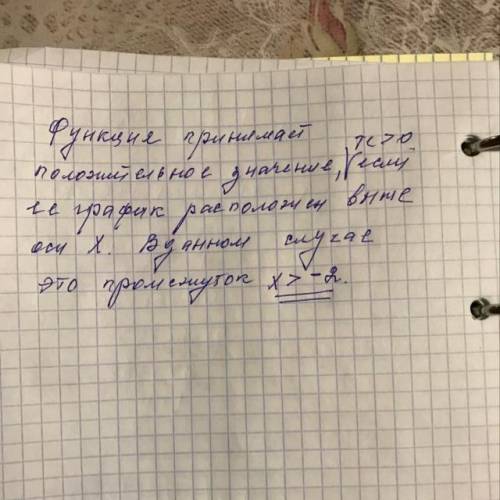 Функция принимает
положительное значение, т.е. >0 если
ее график расположен выше
оси X. В данном случае
это промежуток x > -2.